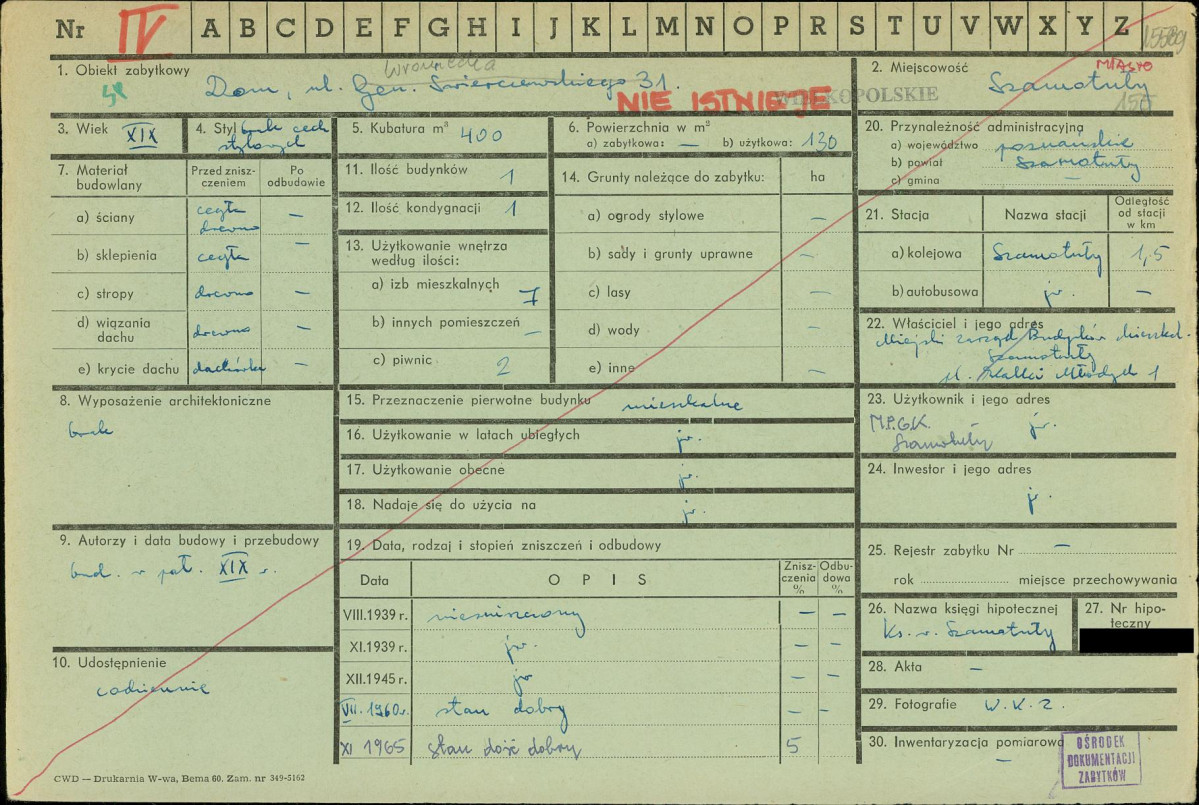 Nr IV A B C D E F G H I J K L M N O P R S T U V W X Y Z 15589
1. Obiekt zabytkowy
Wroniecka
Dom, ul. Gen. Świerczewskiego 31.
NIE ISTNIEJE
WIELKOPOLSKIE
2. Miejscowość
MIASTO
Szamotuły
150
3. Wiek XIX
4. Styl brak cech
stylowych
5. Kubatura m³ 400
6. Powierzchnia w m²
a) zabytkowa: — b) użytkowa: 130
7. Materiał budowlany
Przed zniszczeniem
Po odbudowie
a) ściany cegła drewno —
b) sklepienia cegła —
c) stropy drewno —
d) wiązania dachu drewno —
e) krycie dachu dachówka —
8. Wyposażenie architektoniczne
brak
9. Autorzy i data budowy i przebudowy
bud. w poł. XIX w.
10. Udostępnienie
codziennie
CWD — Drukarnia W-wa, Bema 60. Zam. nr 349-5162
11. Ilość budynków 1
12. Ilość kondygnacji 1
13. Użytkowanie wnętrza
według ilości:
a) izb mieszkalnych 7
b) innych pomieszczeń —
c) piwnic 2
14. Grunty należące do zabytku: ha
a) ogrody stylowe —
b) sady i grunty uprawne —
c) lasy —
d) wody —
e) inne —
15. Przeznaczenie pierwotne budynku mieszkalne
16. Użytkowanie w latach ubiegłych jw.
17. Użytkowanie obecne jw.
18. Nadaje się do użycia na jw.
19. Data, rodzaj i stopień zniszczeń i odbudowy
Data O P I S Zniszczenia % Odbudowa %
VIII.1939 r. niezniszczony — —
XI.1939 r. jw. — —
XII.1945 r. jw — —
VII.1960 r. stan dobry — —
XI 1965 stan dość dobry 5
20. Przynależność administracyjna
a) województwo poznańskie
b) powiat Szamotuły
c) gmina —
21. Stacja Nazwa stacji Odległość od stacji w km
a) kolejowa Szamotuły 1,5
b) autobusowa jw. —
22. Właściciel i jego adres
Miejski Zarząd Budynków Mieszkal.
Szamotuły
1
23. Użytkownik i jego adres
M.P.G.K. jw.
Szamotuły
24. Inwestor i jego adres
jw.
25. Rejestr zabytku Nr —
rok miejsce przechowywania
26. Nazwa księgi hipotecznej
Ks. w. Szamotuły
27. Nr hipoteczny
28. Akta —
29. Fotografie W.K.Z.
30. Inwentaryzacja pomiarowa
—
OŚRODEK
DOKUMENTACJI
ZABYTKÓW